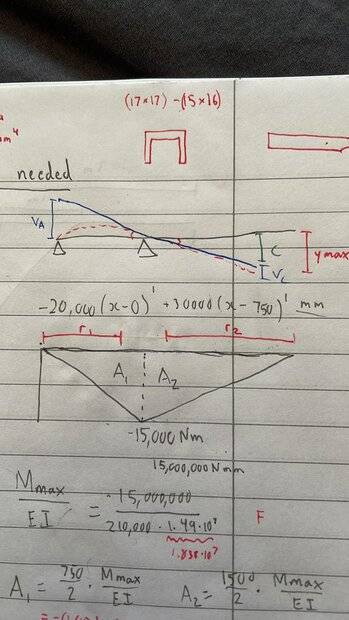 (17×17) - (15×16)
m⁴
needed
V_A
C
V_C
y max
-20,000(x-0)¹ + 30000(x-750)¹ mm
r₁
r₂
A₁
A₂
-15,000 Nm
15,000,000 Nmm
M_max / EI = -15,000,000 / 210,000 · 1.49·10⁷
F
A₁ = 750/2 · M_max/EI
A₂ = 1500/2 · M_max/EI